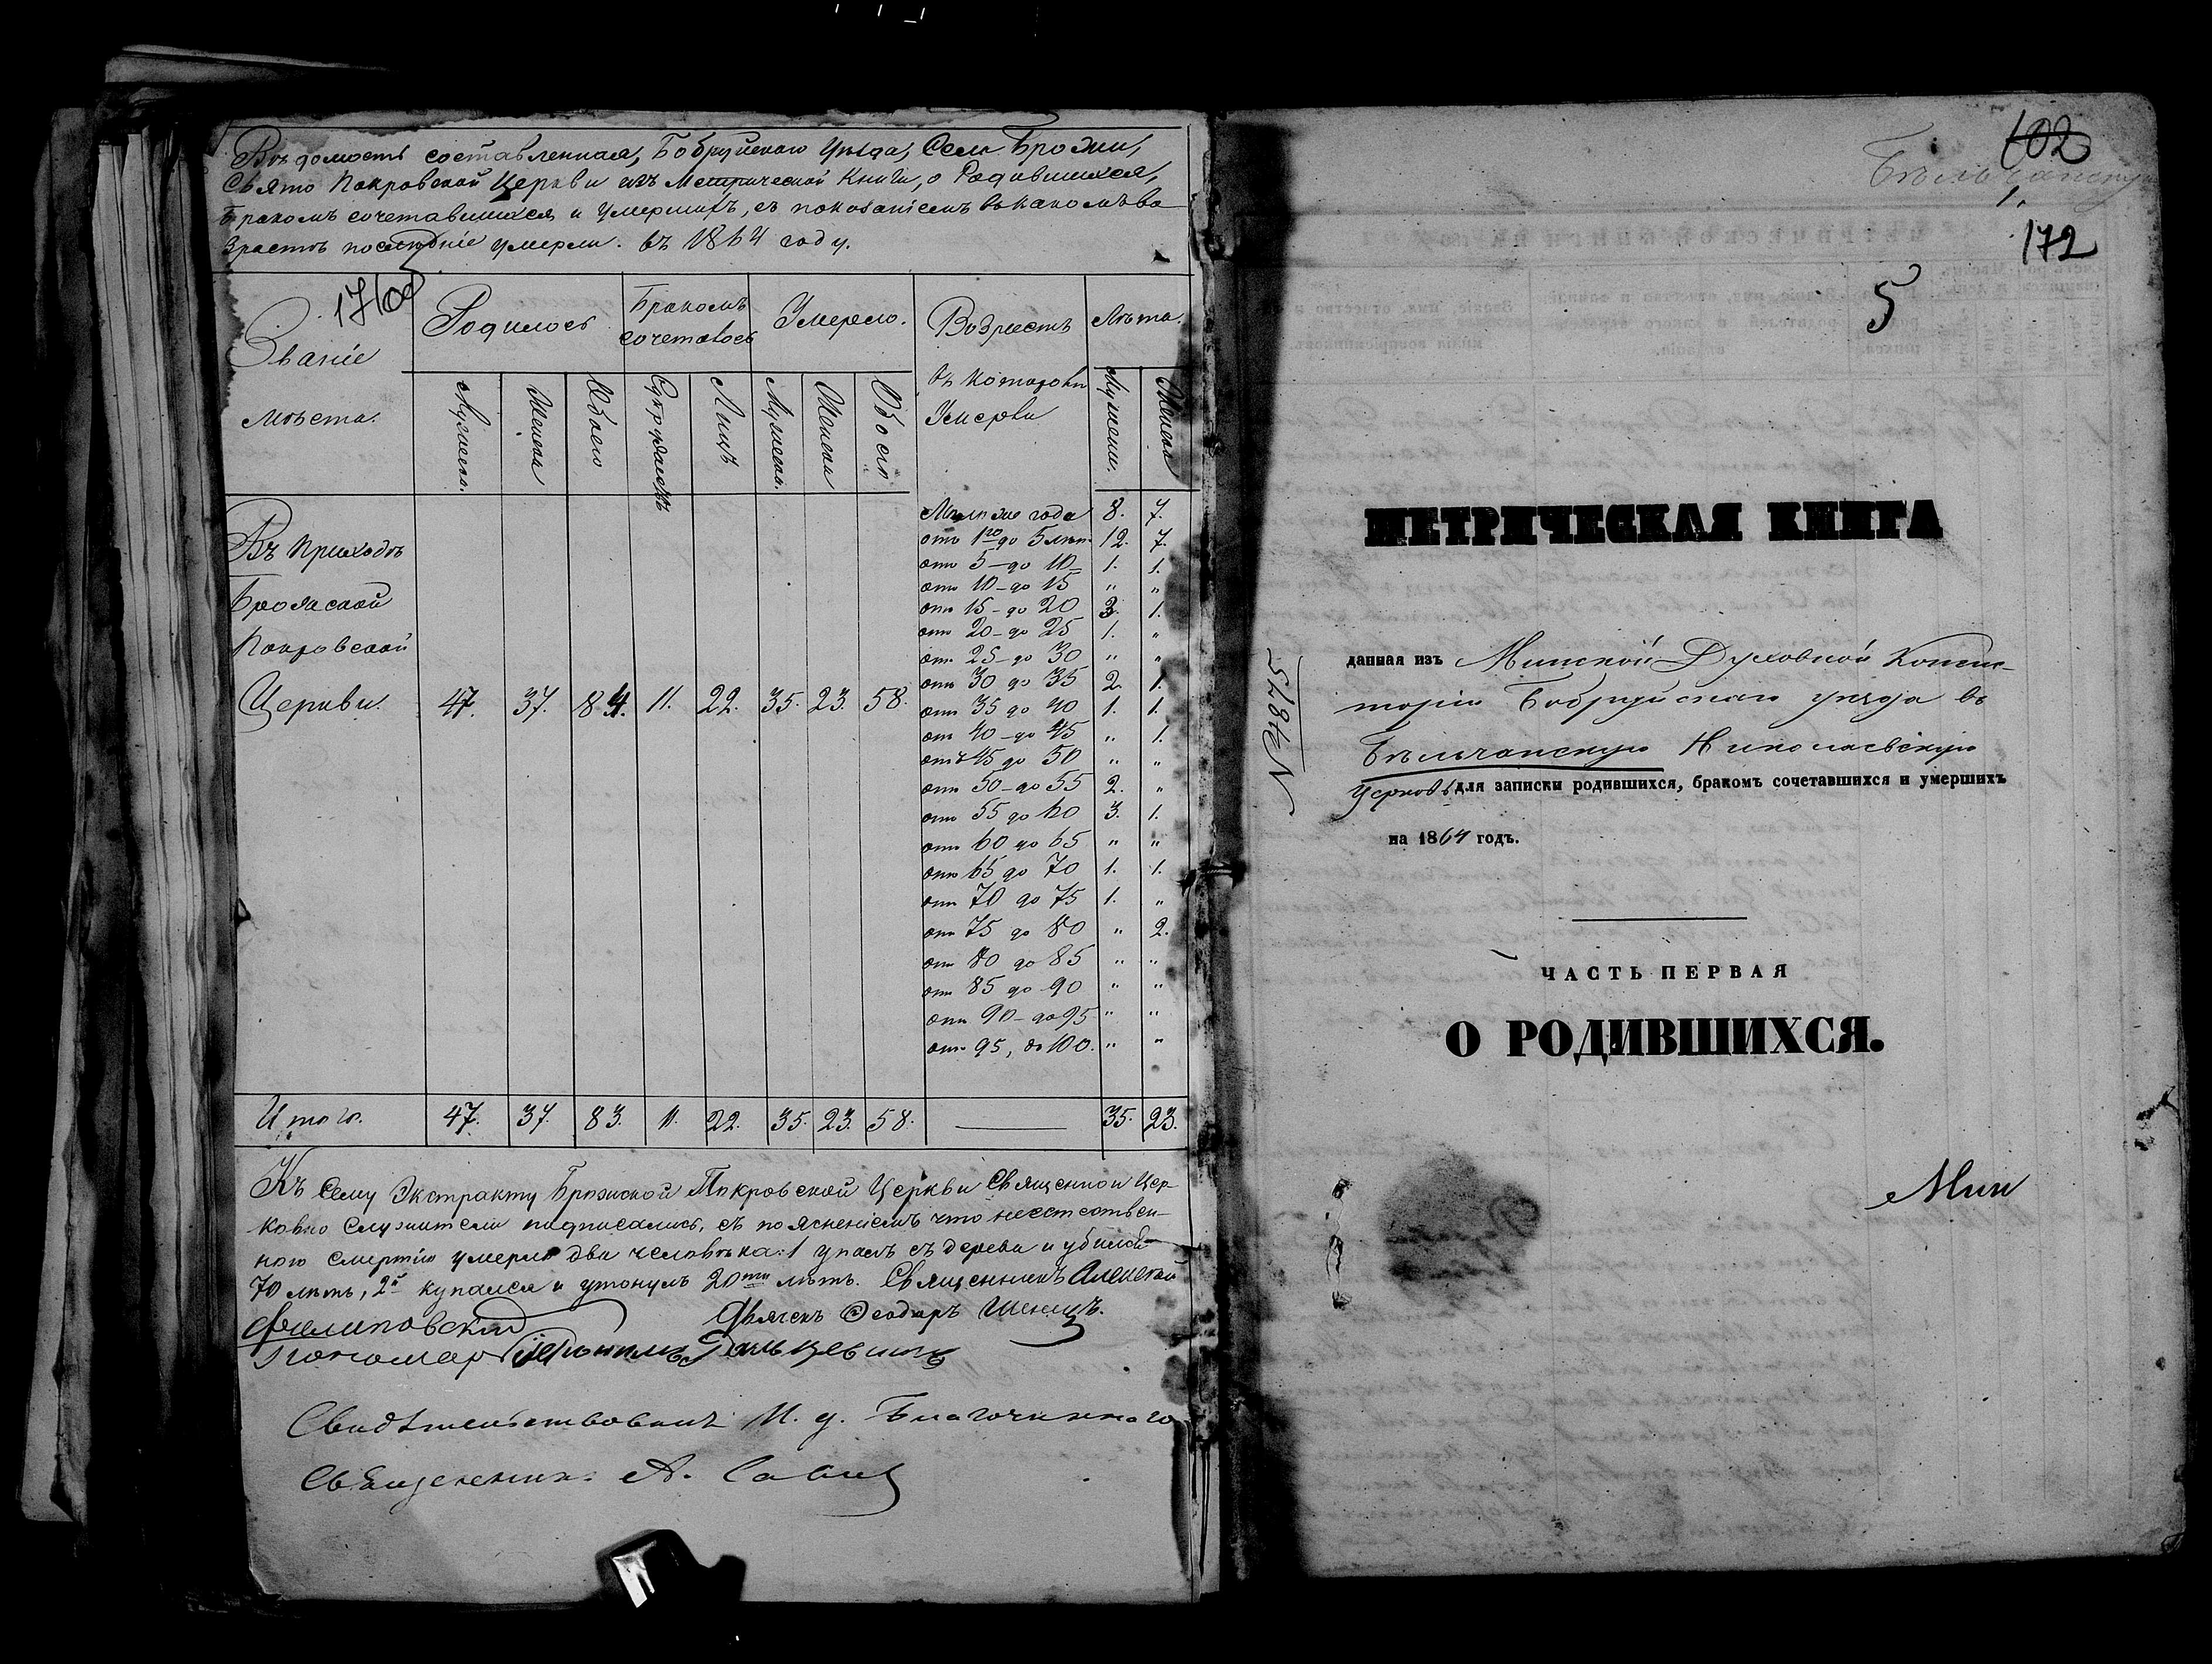 Вѣдомость составленная, Бобруйскаго Уѣзда, Села Брожи,
Свято Покровской Церкви изъ Метрической Книги, о Родившихся,
Бракомъ сочетавшихся и Умершихъ, съ показаніемъ въ какомъ во
зрастѣ послѣдніе умерли. въ 1864 году.
Званіе
мѣста.
Родилось
Бракомъ
сочеталось
Умерло.
Возрастъ
въ которомъ
Умерли
Лѣта.
Мужеск.
Женска
Обоего
Супружествъ
Лицъ
Мужеска.
Женска
Обоего
Мужеск.
Женска
Въ Приходѣ
Брожской
Покровской
Церкви. 47. 37. 84. 11. 22. 35. 23. 58.
Менѣе года 8. 7.
отъ 1го до 5 лѣт. 12. 7.
отъ 5 – до 10 1. 1.
отъ 10 – до 15 " "
отъ 15 – до 20 3. 1.
отъ 20 – до 25 1. "
отъ 25 – до 30 " "
отъ 30 до 35 2. 1.
отъ 35 до 40 1. 1.
отъ 40 – до 45 " 1.
отъ 45 до 50 " "
отъ 50 – до 55 2. "
отъ 55 до 60 3. 1.
отъ 60 до 65 " "
отъ 65 до 70 1. 1.
отъ 70 до 75 1. "
отъ 75 до 80 " 2.
отъ 80 до 85 " "
отъ 85 до 90 " "
отъ 90 – до 95 " "
отъ 95, до 100. " "
Итого. 47. 37. 83. 11. 22. 35. 23. 58. 35. 23.
Къ сему Экстракту Брожской Покровской Церкви Священно и Цер-
ковно служители подписались, съ поясненіемъ что неестествен-
ною смертію умерло два человѣка: 1 упалъ съ дерева и убился
70 лѣтъ, 2й купался и утонулъ 20ти лѣтъ. Священникъ Алексѣй
Филиповскій Дьячекъ Ѳеодоръ Шениц.
Пономарь
Свидѣтельствовалъ И. д. Благочиннаго
Священникъ А. Савич
102
Бѣльчанскую
1.
172
5
МЕТРИЧЕСКАЯ КНИГА
данная изъ Минской Духовной Консис-
торіи Бобруйскаго уѣзда въ
Бѣльчанскую Николаевскую
Церковь для записки родившихся, бракомъ сочетавшихся и умершихъ
на 1864 годъ.
N 4875
ЧАСТЬ ПЕРВАЯ
О РОДИВШИХСЯ.
Мин